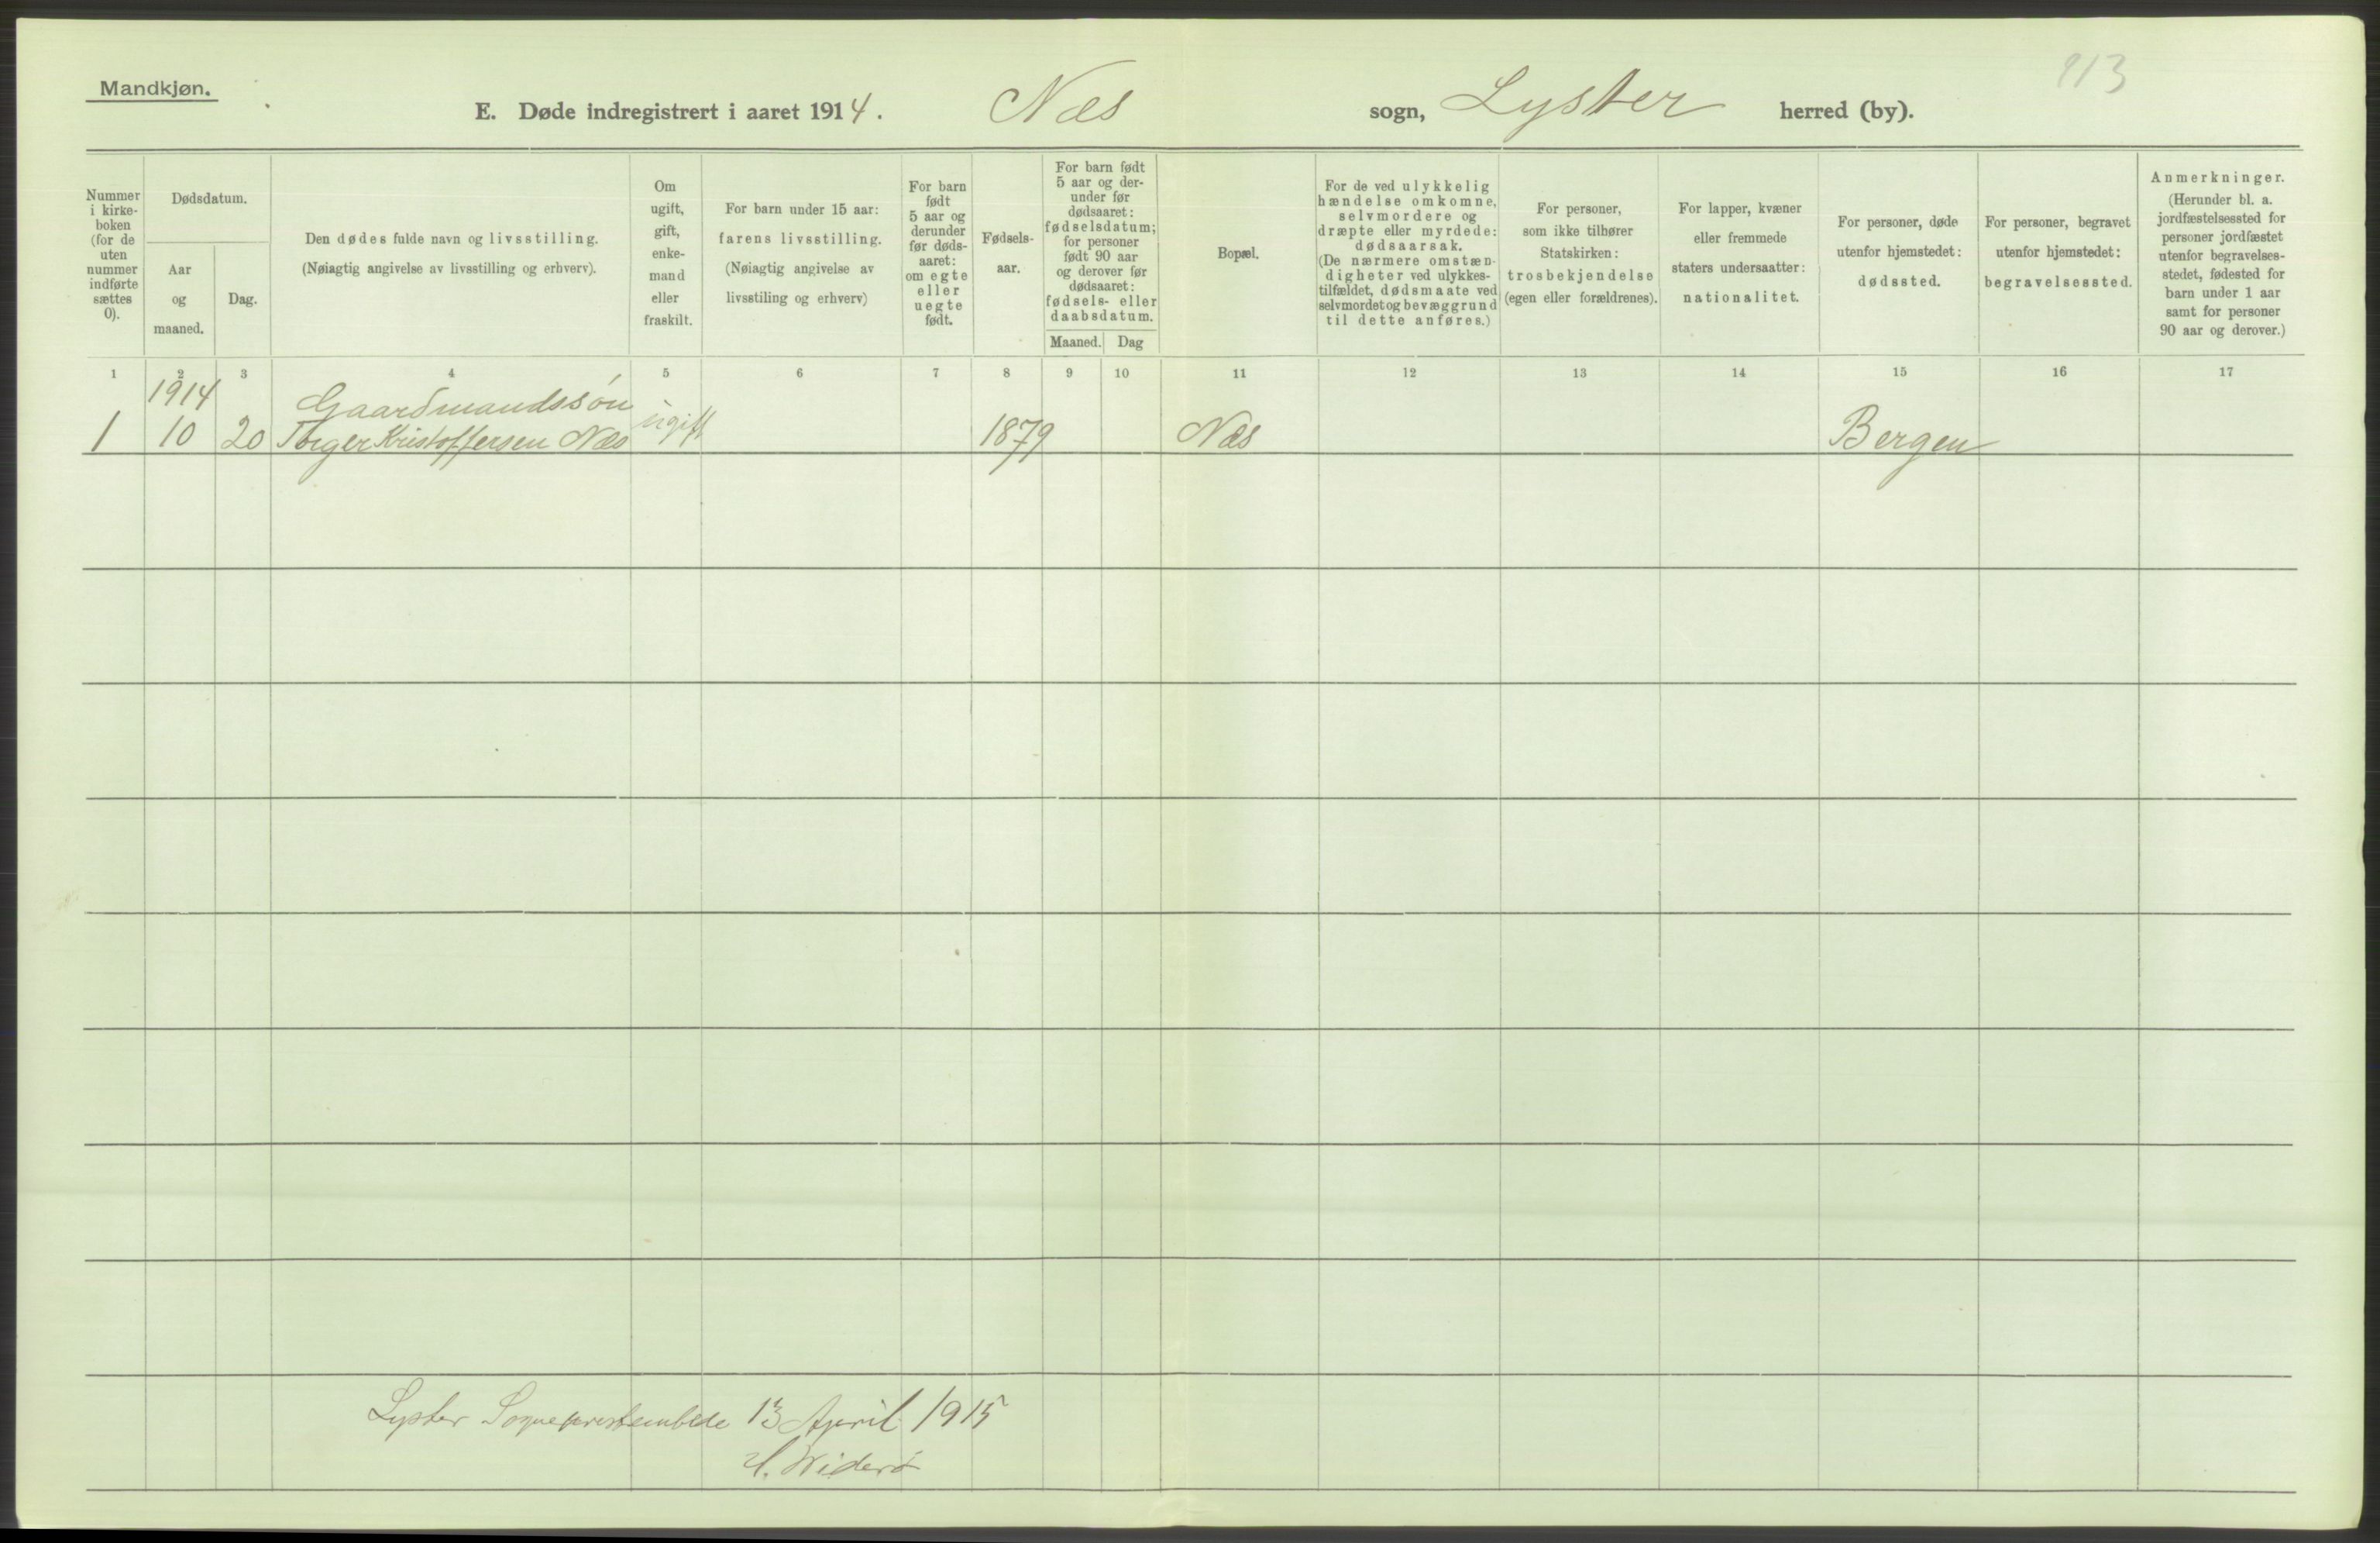 Mandkjøn.
913
E. Døde indregistrert i aaret 1914. Næs sogn, Lyster herred (by).
Nummer
i kirke-
boken
(for de
uten
nummer
indførte
sættes
0).
Dødsdatum.
Aar
og
maaned.
Dag.
Den dødes fulde navn og livsstilling.
(Nøiagtig angivelse av livsstilling og erhverv).
Om
ugift,
gift,
enke-
mand
eller
fraskilt.
For barn under 15 aar:
farens livsstilling.
(Nøiagtig angivelse av
livsstiling og erhverv)
For barn
født
5 aar og
derunder
før døds-
aaret:
om egte
eller
uegte
født.
Fødsels-
aar.
For barn født
5 aar og der-
under før
dødsaaret:
fødselsdatum;
for personer
født 90 aar
og derover før
dødsaaret:
fødsels- eller
daabsdatum.
Maaned. Dag
Bopæl.
For de ved ulykkelig
hændelse omkomne,
selvmordere og
dræpte eller myrdede:
dødsaarsak.
(De nærmere omstæn-
digheter ved ulykkes-
tilfældet, dødsmaate ved
selvmordet og bevæggrund
til dette anføres.)
For personer,
som ikke tilhører
Statskirken:
trosbekjendelse
(egen eller forældrenes).
For lapper, kvæner
eller fremmede
staters undersaatter:
nationalitet.
For personer, døde
utenfor hjemstedet:
dødssted.
For personer, begravet
utenfor hjemstedet:
begravelsessted.
Anmerkninger.
(Herunder bl. a.
jordfæstelsessted for
personer jordfæstet
utenfor begravelses-
stedet, fødested for
barn under 1 aar
samt for personer
90 aar og derover.)
1 2 3 4 5 6 7 8 9 10 11 12 13 14 15 16 17
1914 Gaardmandssøn
1 10 20 Torger Kristoffersen Næs ugift 1879 Næs Bergen
Lyster Sogneprestembede 13 April 1915
H. Widerø